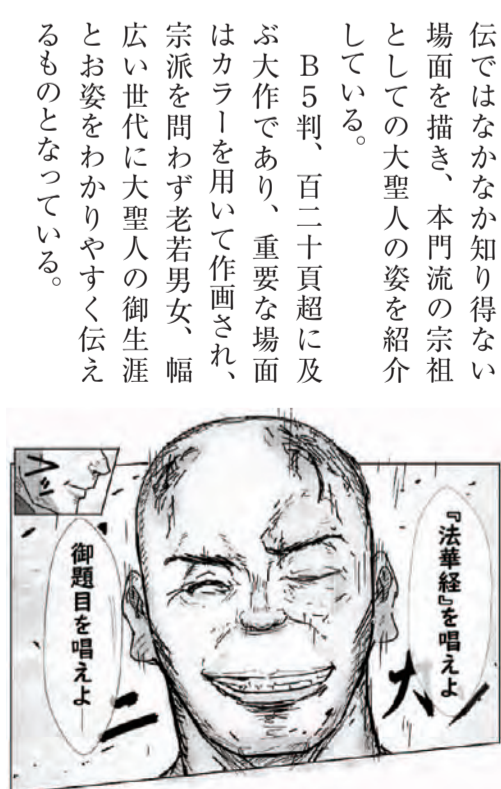 伝ではなかなか知り得ない
場面を描き、本門流の宗祖
としての大聖人の姿を紹介
している。
　Ｂ５判、百二十頁超に及
ぶ大作であり、重要な場面
はカラーを用いて作画され、
宗派を問わず老若男女、幅
広い世代に大聖人の御生涯
とお姿をわかりやすく伝え
るものとなっている。
『法華経』を唱えよ
御題目を唱えよ―
ニ